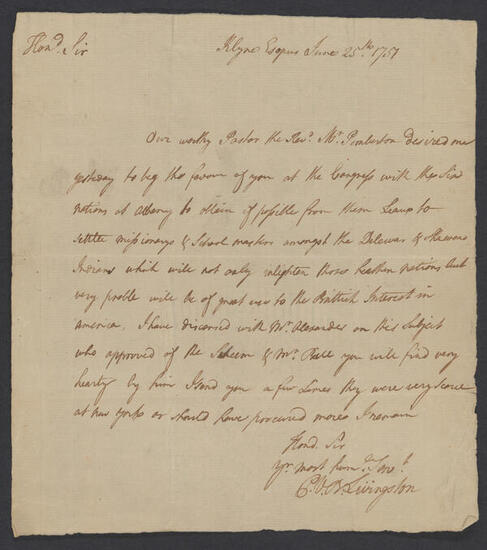 Hond. Sir
Klyne Esopus June 25th. 1751
Our worthy Pastor the Revd. Mr. Pemberton desired me
yesterday to beg the favour of you at the Congress with the Six
nations at Albany to obtain if possible from them Leave to
settle missionarys & School masters amongst the Delawar &
Indians which will not only inlighten those heathen nations but
very proble will be of great use to the Brittish Interest in
America. I have discorsed with Mr. Alexander on this Subject
who approved of the Scheem & Mr. you will find very
hearty by him I send you a few Limes they were very scarce
at new York or should have procured more I remain
Hond. Sir
Yr. most hum. Servt.
P. V. B. Livingston